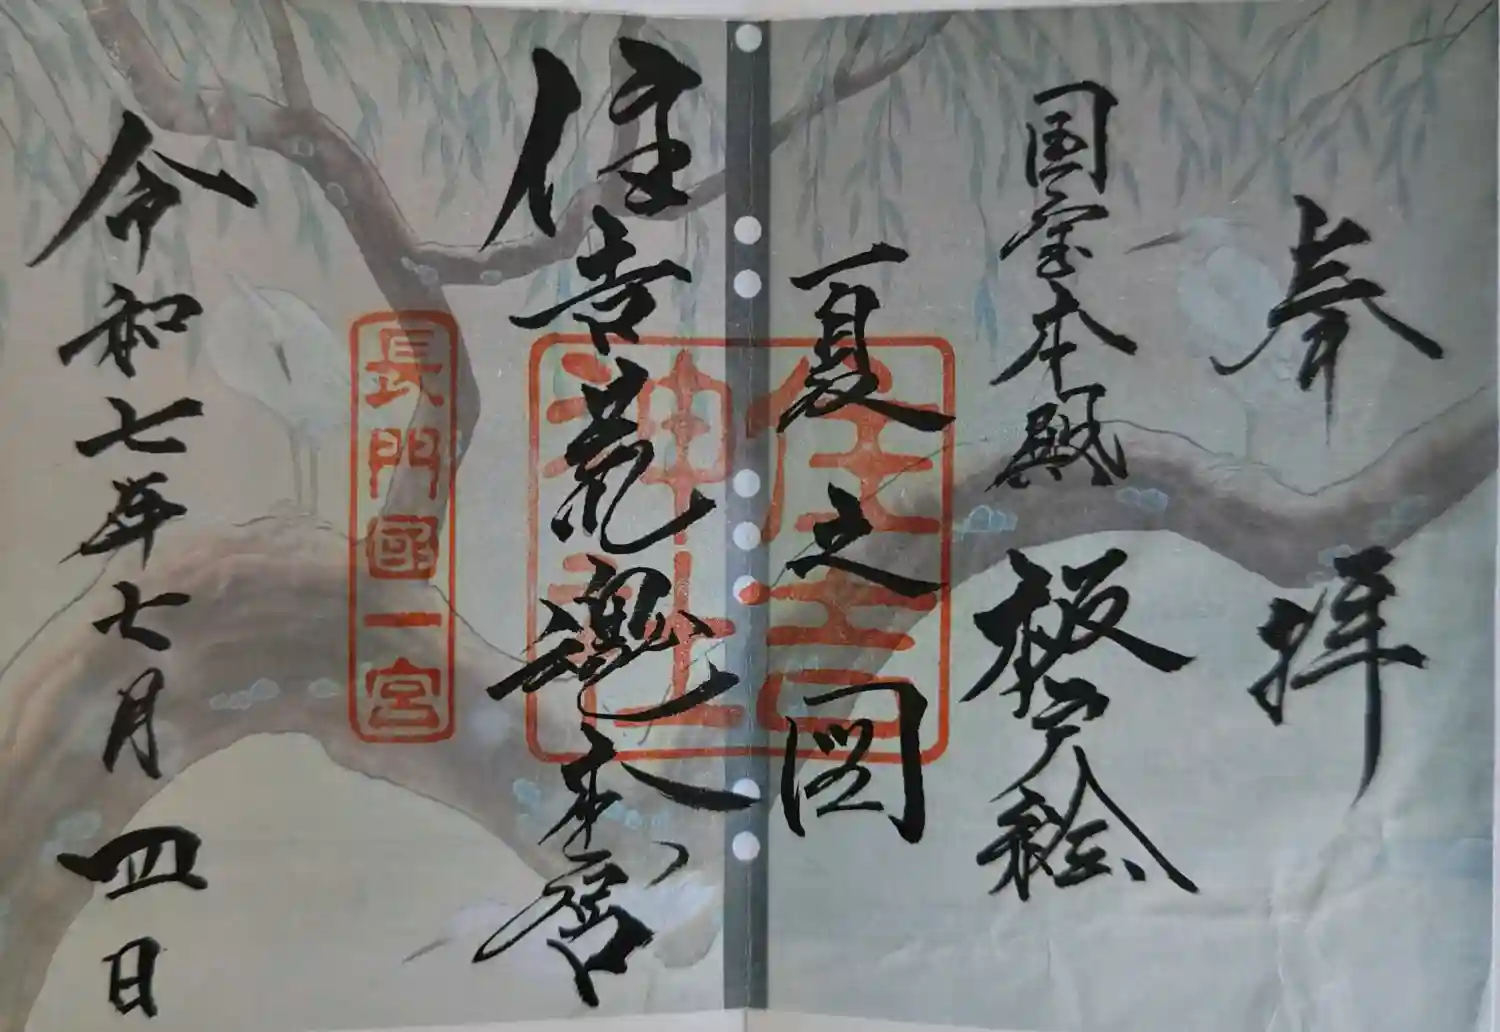 奉拝
国宝本殿 板戸絵
夏之図
住吉荒魂本宮
令和七年七月四日
住吉
神社
長門國一宮